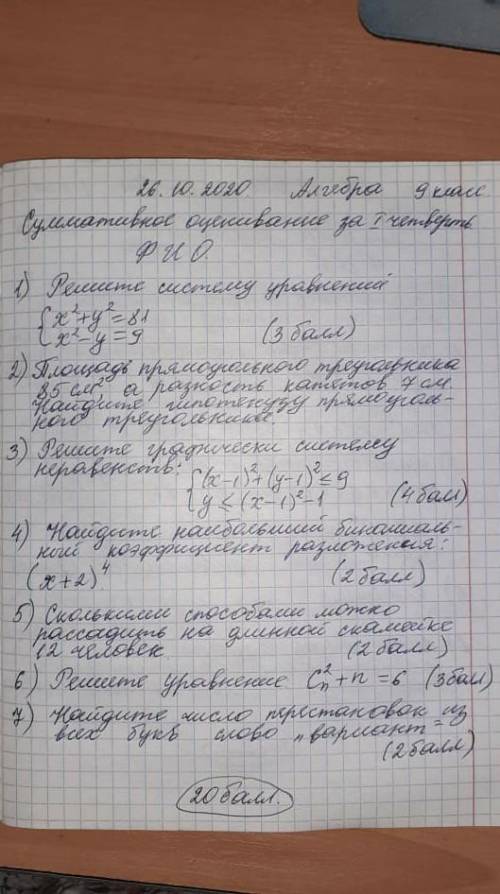 26.10.2020 Алгебра 9 класс
Суммативное оценивание за I четверть
ФИО.
1) Решите систему уравнений
{x²+y²=81
x²-y=9 (3 балл)
2) Площадь прямоугольного треугольника
85 см², а разность катетов 7 см.
Найдите гипотенузу прямоуголь-
ного треугольника.
3) Решите графически систему
неравенств: {(x-1)²+(y-1)²≤9
y≤(x-1)²-1 (4 балл)
4) Найдите наибольший биномиаль-
ный коэффициент разложения:
(x+2)⁴. (2 балл)
5) Сколькими способами можно
рассадить на длинной скамейке
12 человек (2 балл)
6) Решите уравнение C²ₙ+n=6 (3 балл)
7) Найдите число перестановок из
всех букв слово „вариант"
(2 балл)
20 балл.